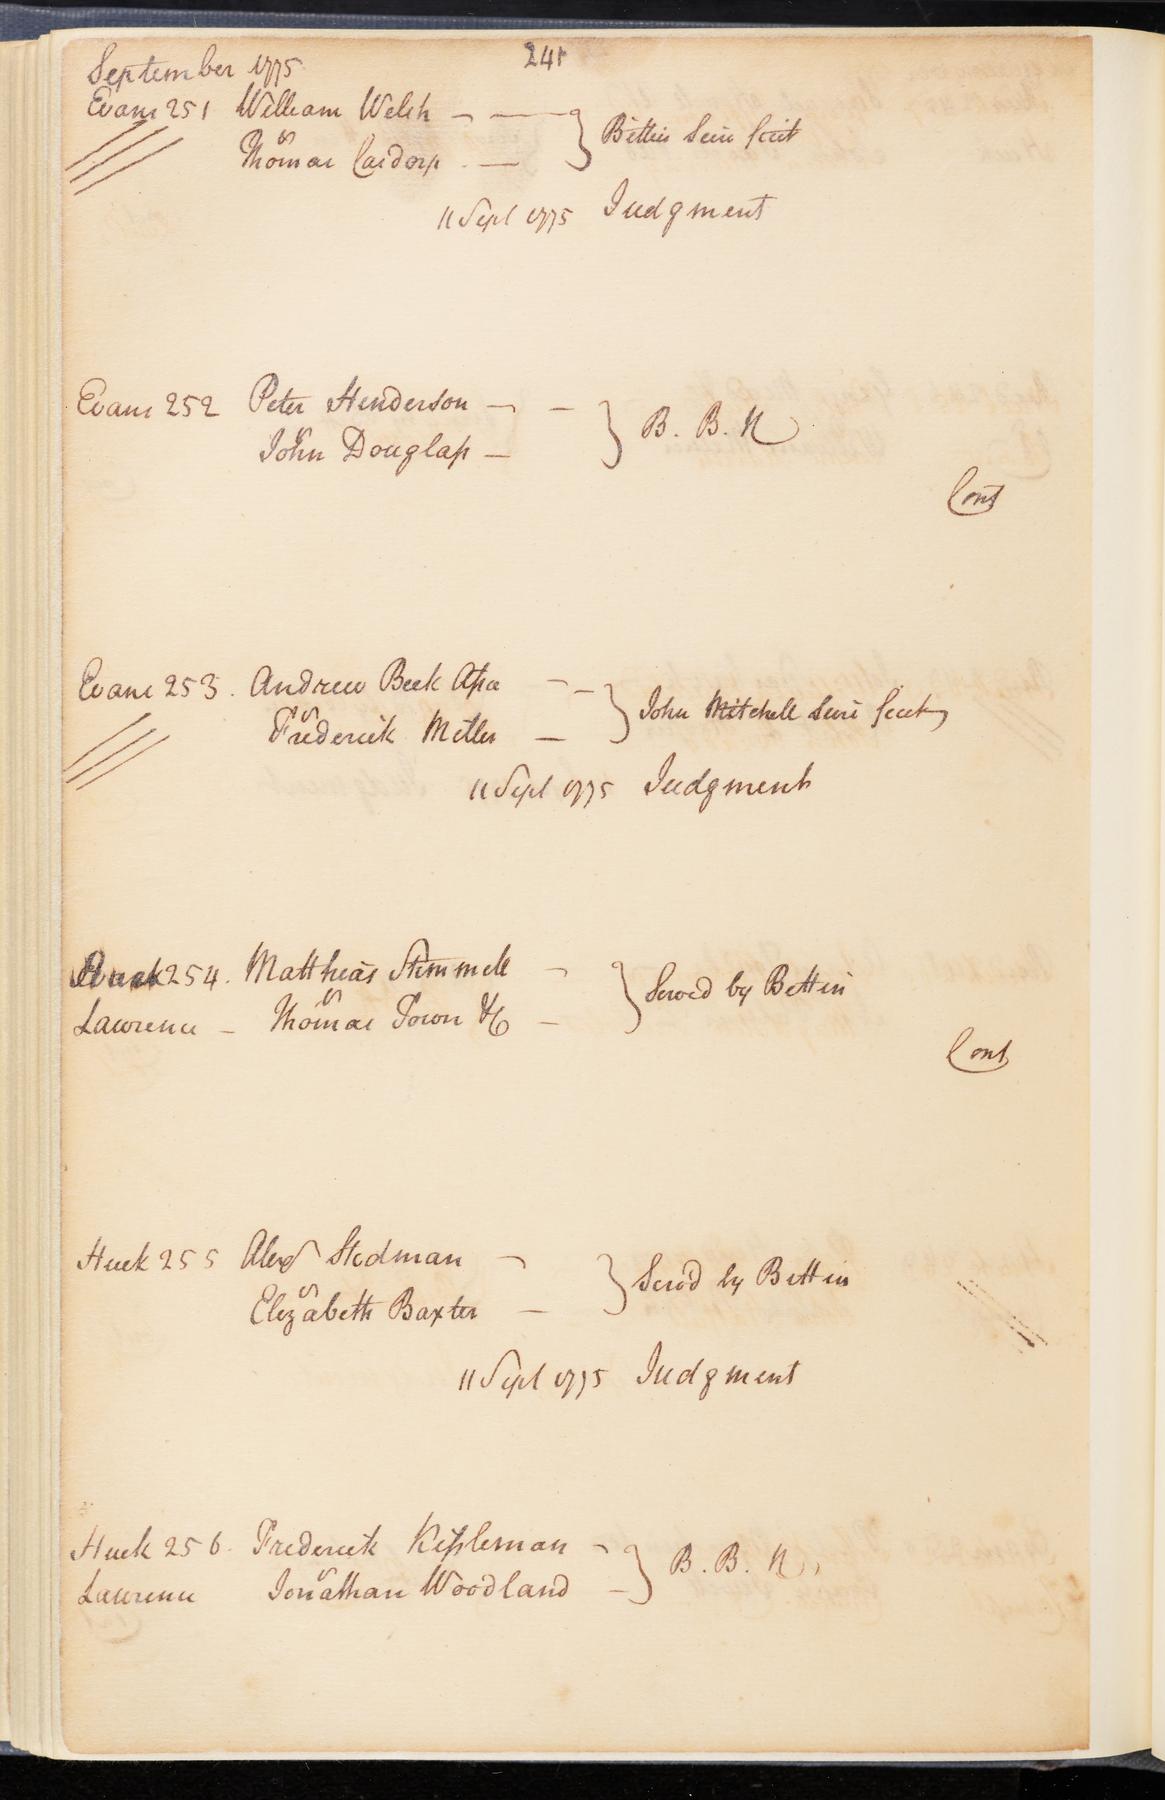 241
September 1775
Evans 251 William Welsh — — } Bettin Serv̄ Scit
vs
Thomas Cardorp —
11 Sept 1775 Judgment
Evans 252 Peter Henderson — — } B. B. N
vs
John Douglass —
Cont
Evans 253. Andrew Beck Assa — — } John Mitchell Serv̄ Scit
vs
Frederick Miller —
11 Sept 1775 Judgment
254. Matthias Stimmell — } Served by Bettin
vs
Lawrence — Thomas Town &c —
Cont
Huck 255 Alexr Stedman — } Servd by Bettin
vs
Elizabeth Baxter —
11 Sept 1775 Judgment
Huck 256. Frederick Kissleman — } B. B. N
vs
Lawrence Jonathan Woodland —